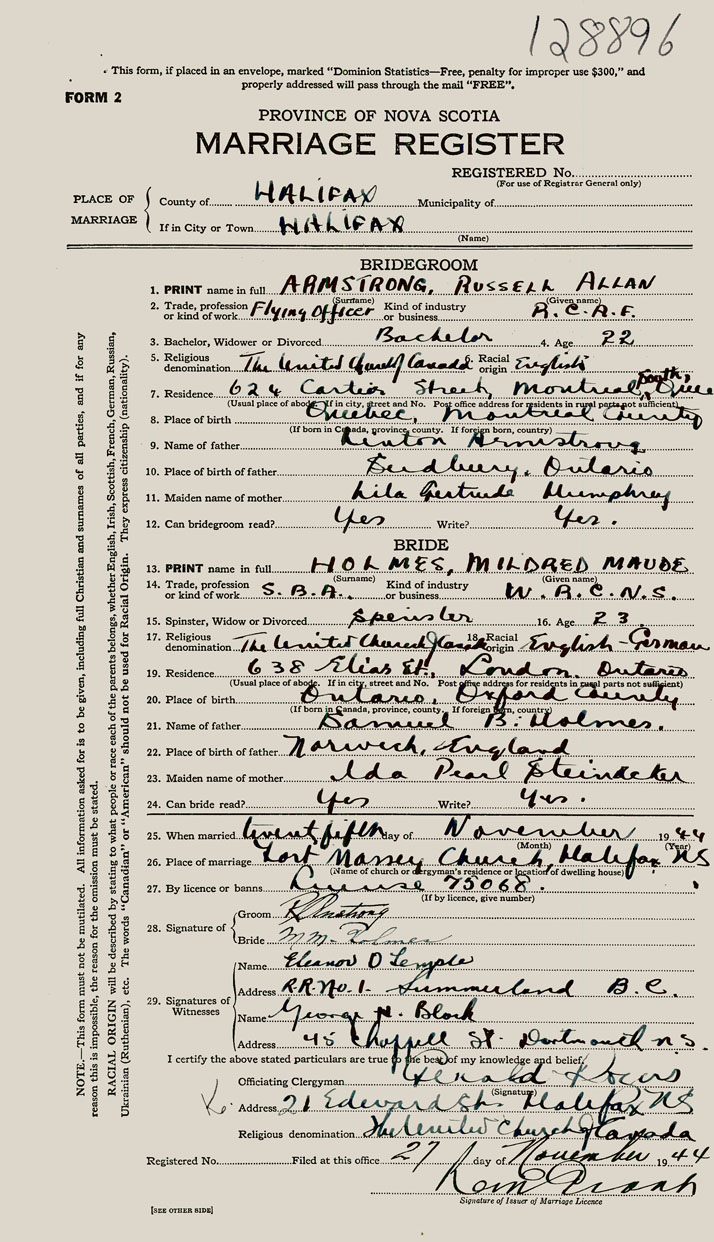 128896
This form, if placed in an envelope, marked "Dominion Statistics—Free, penalty for improper use $300," and
properly addressed will pass through the mail "FREE".
FORM 2
PROVINCE OF NOVA SCOTIA
MARRIAGE REGISTER
REGISTERED No.
(For use of Registrar General only)
PLACE OF MARRIAGE
County of HALIFAX Municipality of
If in City or Town HALIFAX
(Name)
BRIDEGROOM
1. PRINT name in full ARMSTRONG, RUSSELL ALLAN
(Surname) (Given name)
2. Trade, profession or kind of work Flying Officer Kind of industry or business R.C.A.F.
3. Bachelor, Widower or Divorced Bachelor 4. Age 22
5. Religious denomination The United Church of Canada 6. Racial origin English
7. Residence 624 Cartier Street, Montreal South, Que
(Usual place of abode. If in city, street and No. Post office address for residents in rural parts not sufficient)
8. Place of birth Quebec, Montreal County
(If born in Canada, province, county. If foreign born, country)
9. Name of father Armstrong
10. Place of birth of father Sudbury, Ontario
11. Maiden name of mother Lila Gertrude Humphrey
12. Can bridegroom read? Yes Write? Yes.
BRIDE
13. PRINT name in full HOLMES, MILDRED MAUDE
(Surname) (Given name)
14. Trade, profession or kind of work S.B.A. Kind of industry or business W.R.C.N.S.
15. Spinster, Widow or Divorced Spinster 16. Age 23
17. Religious denomination The United Church of Canada 18. Racial origin English-German
19. Residence 638 Elias St., London, Ontario
(Usual place of abode. If in city, street and No. Post office address for residents in rural parts not sufficient)
20. Place of birth Ontario, Oxford County
(If born in Canada, province, county. If foreign born, country)
21. Name of father Samuel B. Holmes.
22. Place of birth of father Norwich, England
23. Maiden name of mother Ida Pearl Steinacker
24. Can bride read? Yes Write? Yes.
25. When married twenty fifth day of November 1944
(Month) (Year)
26. Place of marriage Fort Massey Church, Halifax NS
(Name of church or clergyman's residence or location of dwelling house)
27. By licence or banns License 75068.
(If by licence, give number)
28. Signature of
Groom R Armstrong
Bride M.M. Holmes
29. Signatures of Witnesses
Name Eleanor D Temple
Address R.R. No. 1. Summerland B.C.
Name George N. Block
Address 45 Chappell St. Dartmouth N.S.
I certify the above stated particulars are true to the best of my knowledge and belief.
Officiating Clergyman Gerald Rogers
(Signature)
Address 21 Edward St. Halifax NS
Religious denomination The United Church of Canada
Registered No. Filed at this office 27 day of November 1944
Signature of Issuer of Marriage Licence
[SEE OTHER SIDE]
NOTE.—This form must not be mutilated. All information asked for is to be given, including full Christian and surnames of all parties, and if for any
reason this is impossible, the reason for the omission must be stated.
RACIAL ORIGIN will be described by stating to what people or race each of the parents belongs, whether English, Irish, Scottish, French, German, Russian,
Ukrainian (Ruthenian), etc. The words "Canadian" or "American" should not be used for Racial Origin. They express citizenship (nationality).